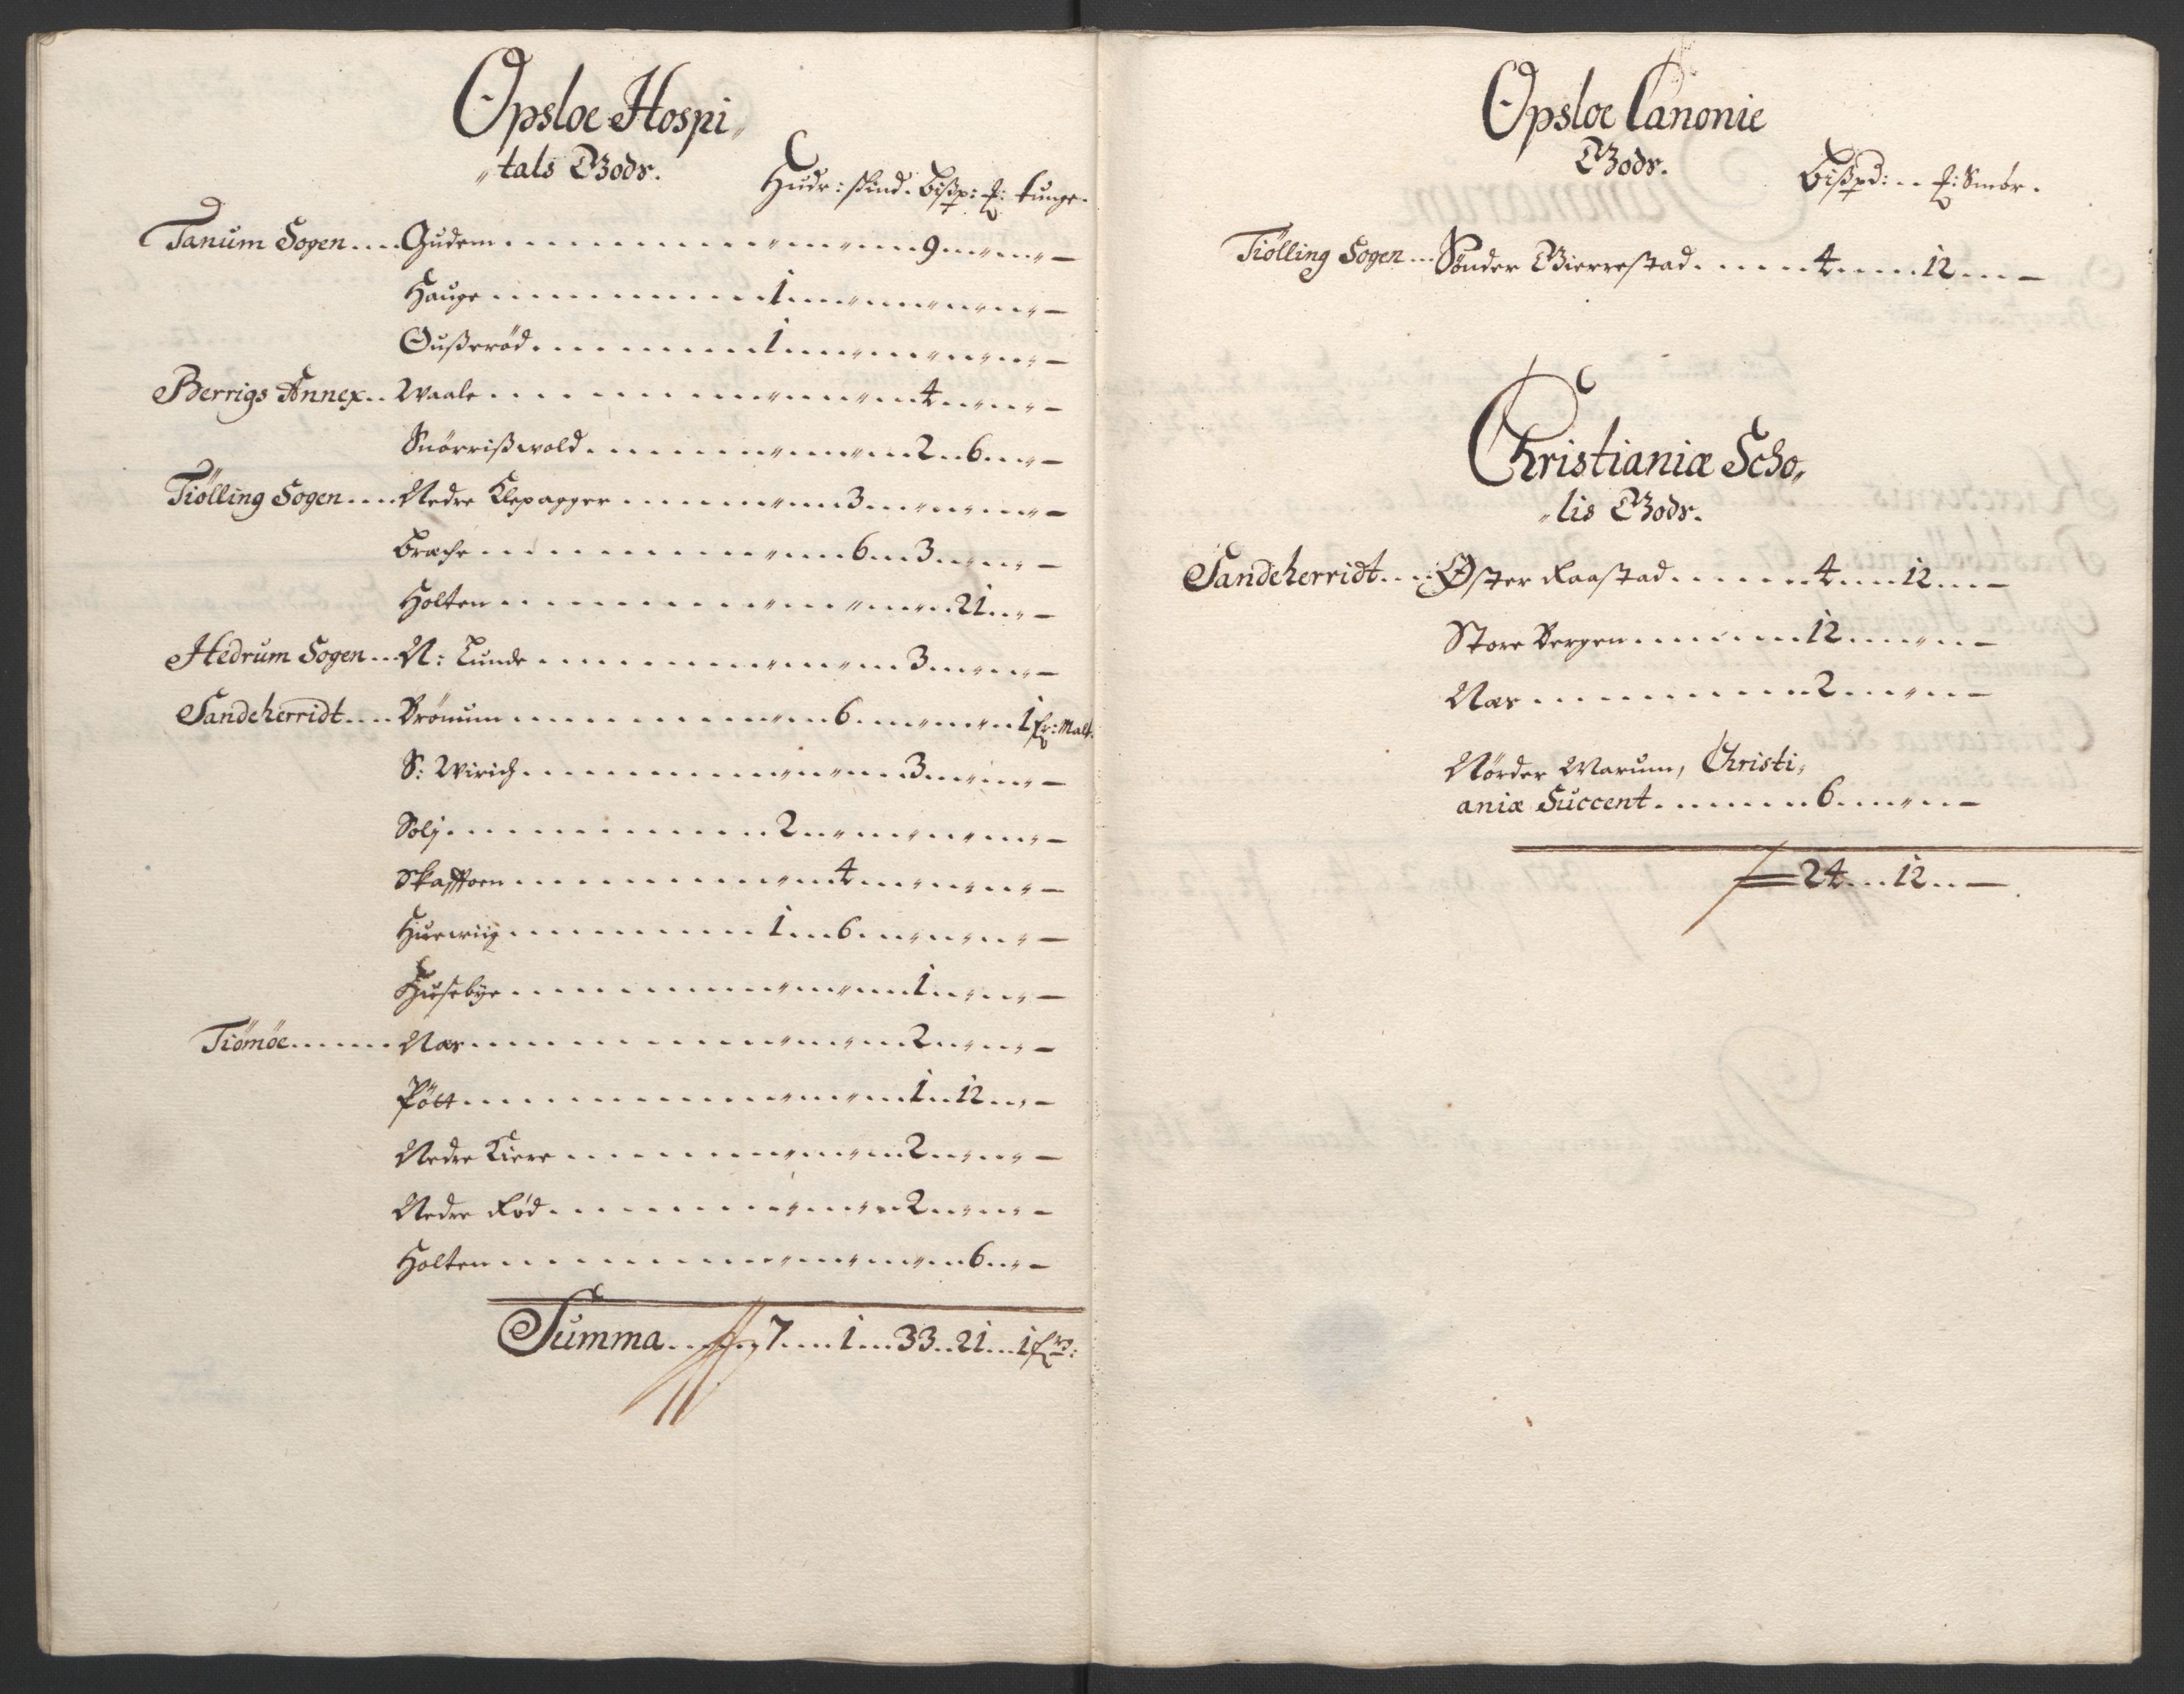 Opsloe Hospi„
„tals Godr.
Hudr: skind. Bißp: ℔: tunge.
Tanum Sogen.... Gudem . . . „ . „ . „ . 9 . „ . „ —
Hauge . . . 1 . „ . „ . „ . „ . „ —
Oußerød . . . 1 . „ . „ . „ . „ . „ —
Berrigs Annex.. Waale . . . „ . „ . „ . 4 . „ . „ —
Snörrißwold . . . „ . „ . „ . 2 . 6 . „ —
Tiölling Sogen.... Nedre Klepagger . . . „ . 3 . „ . „ . „ —
Brache . . . „ . 6 . 3 . „ . „ —
Holten . . . „ . „ . „ . 21 . „ —
Hedrum Sogen... N: Lunde . . . „ . „ . 3 . „ . „ —
Sandeherridt.... Brönum . . . „ . 6 . „ . „ . 1 Fr: Malt.
S: Wirich . . . „ . „ . 3 . „ . „ —
Solj . . . 2 . „ . „ . „ . „ —
Skafftoen . . . „ . 4 . „ . „ . „ —
Huewiig . . . 1 . 6 . „ . „ . „ —
Husebye . . . „ . „ . 1 . „ . „ —
Tiömöe...... Næs . . . „ . „ . 2 . „ . „ —
Pött . . . „ . „ . 1 . 12 . „ —
Nedre Kiere . . . „ . „ . 2 . „ . „ —
Nedre Rød . . . „ . „ . 2 . „ . „ —
Holten . . . „ . „ . „ . 6 . „ —
Summa . . . 7 . . . 1 . . . 33 . . 21 . . . 1 fr:
Opsloe Canonie
Godr.
Bißpd: . . ℔: Smör.
Tiölling Sogen... Sönder Bierrestad . . . 4 . . . 12 . . —
Christianiæ Scho„
„lis Godr.
Sandeherridt.... Øster Raastad . . . 4 . . . 12 . . —
Store Bergen . . . 12 . . „ . —
Næs . . . 2 . . „ . —
Nörder Warum, Christi„
aniæ Succent . . . 6 . . „ . —
24 . . . 12 . . —